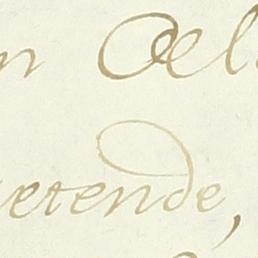 n Oel
etende,